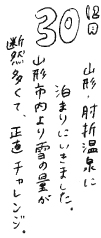 30日目
山形・肘折温泉に
泊まりにいきました。
山形市内より雪の量が
断然多くて、正直チャレンジ。